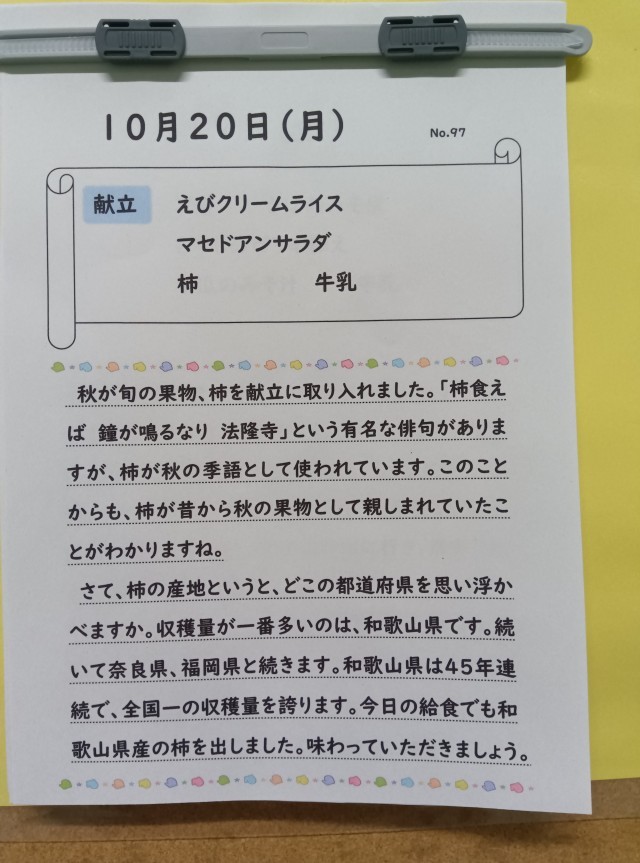 10月20日（月）
No.97
献立 えびクリームライス
マセドアンサラダ
柿 牛乳
秋が旬の果物、柿を献立に取り入れました。「柿食え
ば 鐘が鳴るなり 法隆寺」という有名な俳句がありま
すが、柿が秋の季語として使われています。このこと
からも、柿が昔から秋の果物として親しまれていたこ
とがわかりますね。
さて、柿の産地というと、どこの都道府県を思い浮か
べますか。収穫量が一番多いのは、和歌山県です。続
いて奈良県、福岡県と続きます。和歌山県は45年連
続で、全国一の収穫量を誇ります。今日の給食でも和
歌山県産の柿を出しました。味わっていただきましょう。